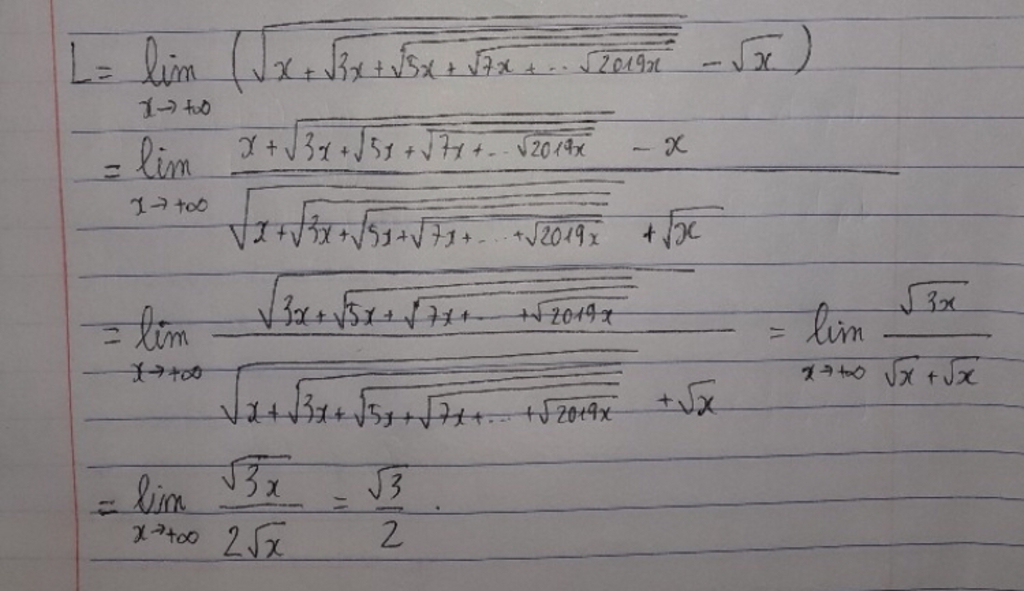 L = lim x→+∞ (√(x + √(3x + √(5x + √(7x + ... √(2019x))))) − √x)
= lim x→+∞ (x + √(3x + √(5x + √(7x + ... √(2019x)))) − x) / (√(x + √(3x + √(5x + √(7x + ... + √(2019x))))) + √x)
= lim x→+∞ √(3x + √(5x + √(7x + ... + √(2019x)))) / (√(x + √(3x + √(5x + √(7x + ... + √(2019x))))) + √x) = lim x→+∞ √(3x) / (√x + √x)
= lim x→+∞ √(3x) / (2√x) = √3 / 2 .